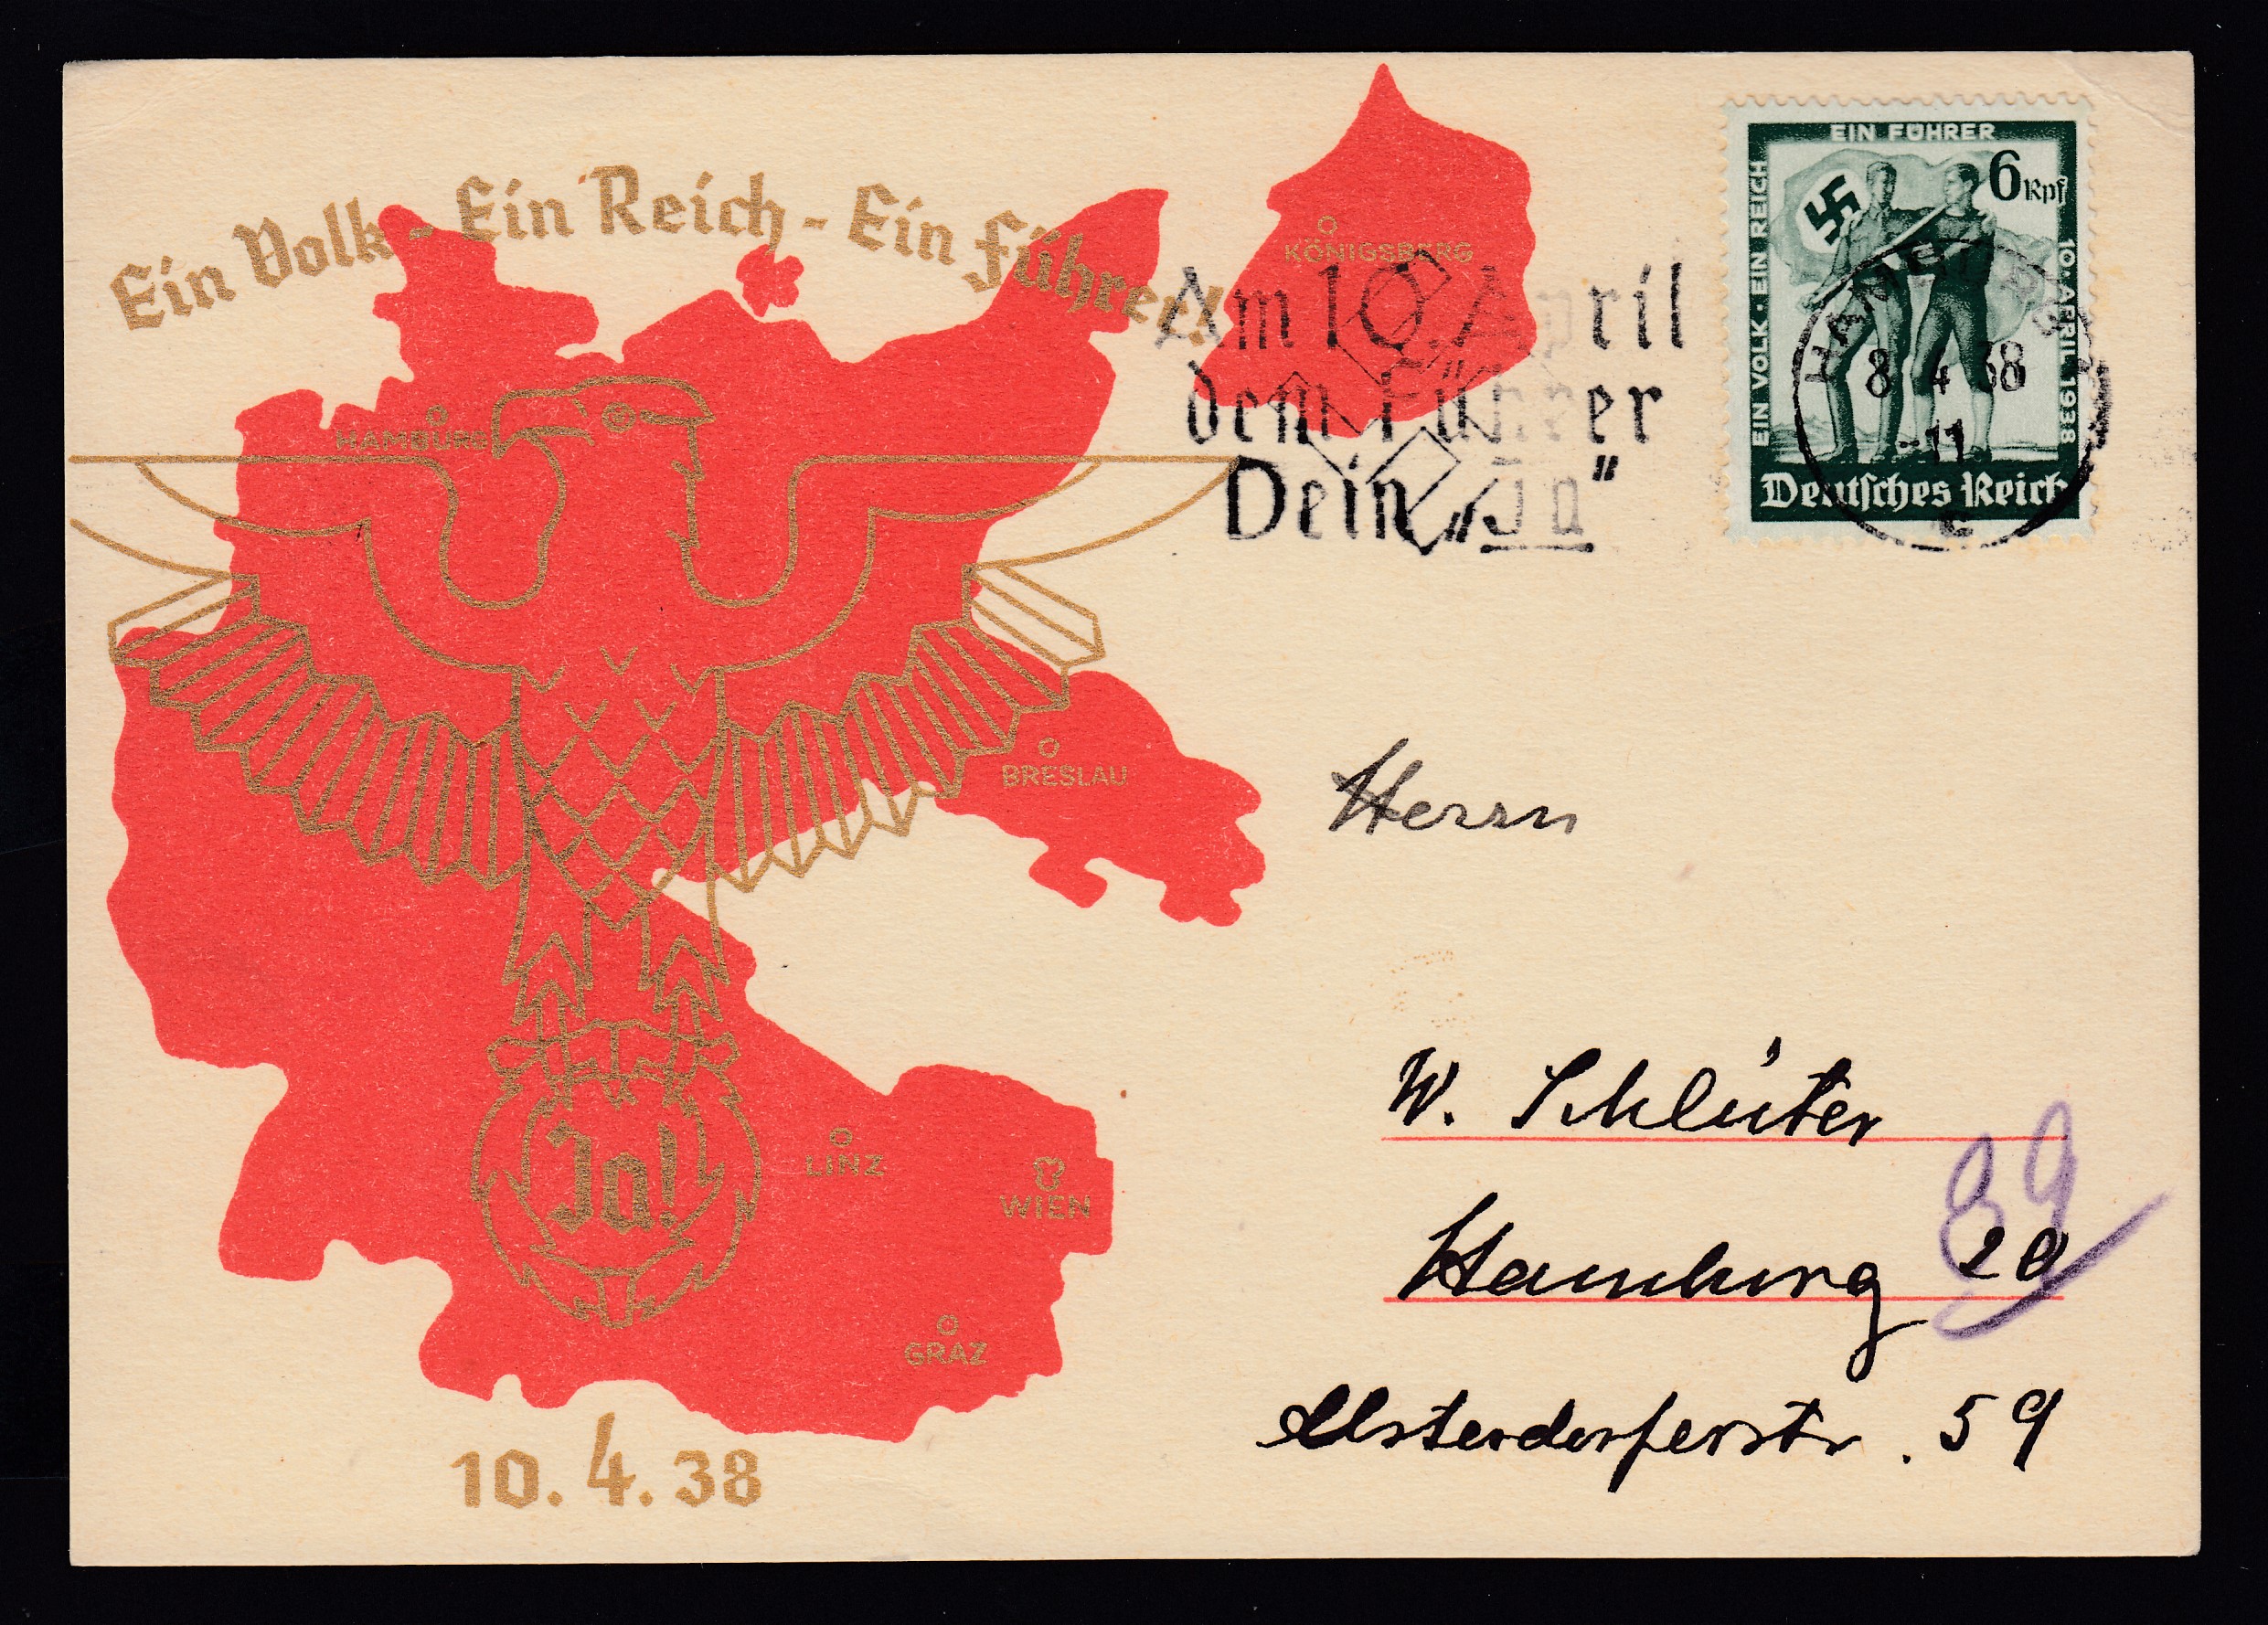 Ein Volk - Ein Reich - Ein Führer!
KÖNIGSBERG
HAMBURG
BRESLAU
LINZ
WIEN
GRAZ
Ja!
10. 4. 38
Am 10. April
dem Führer
Dein „Ja“
EIN FÜHRER
EIN VOLK · EIN REICH
10. APRIL 1938
6 Rpf
Deutsches Reich
HAMBURG
8 4 38
-11
c
Herrn
W. Schlüter
Hamburg 20
Alsterdorferstr. 59
39